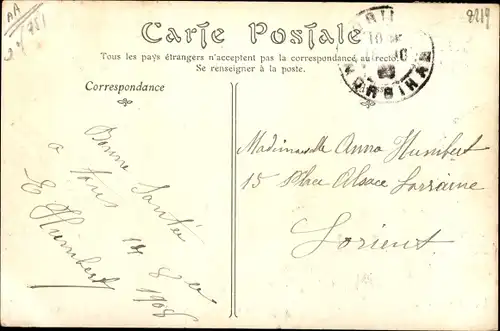 AA
751
8219
Carte Postale
Tous les pays étrangers n'acceptent pas la correspondance au recto.
Se renseigner à la poste.
MORBIHAN
Correspondance
Bonne Santée
a tous
14 8
1908
E Humbert
Mademoiselle Anna Humbert
15 Place Alsace Lorraine
Lorient